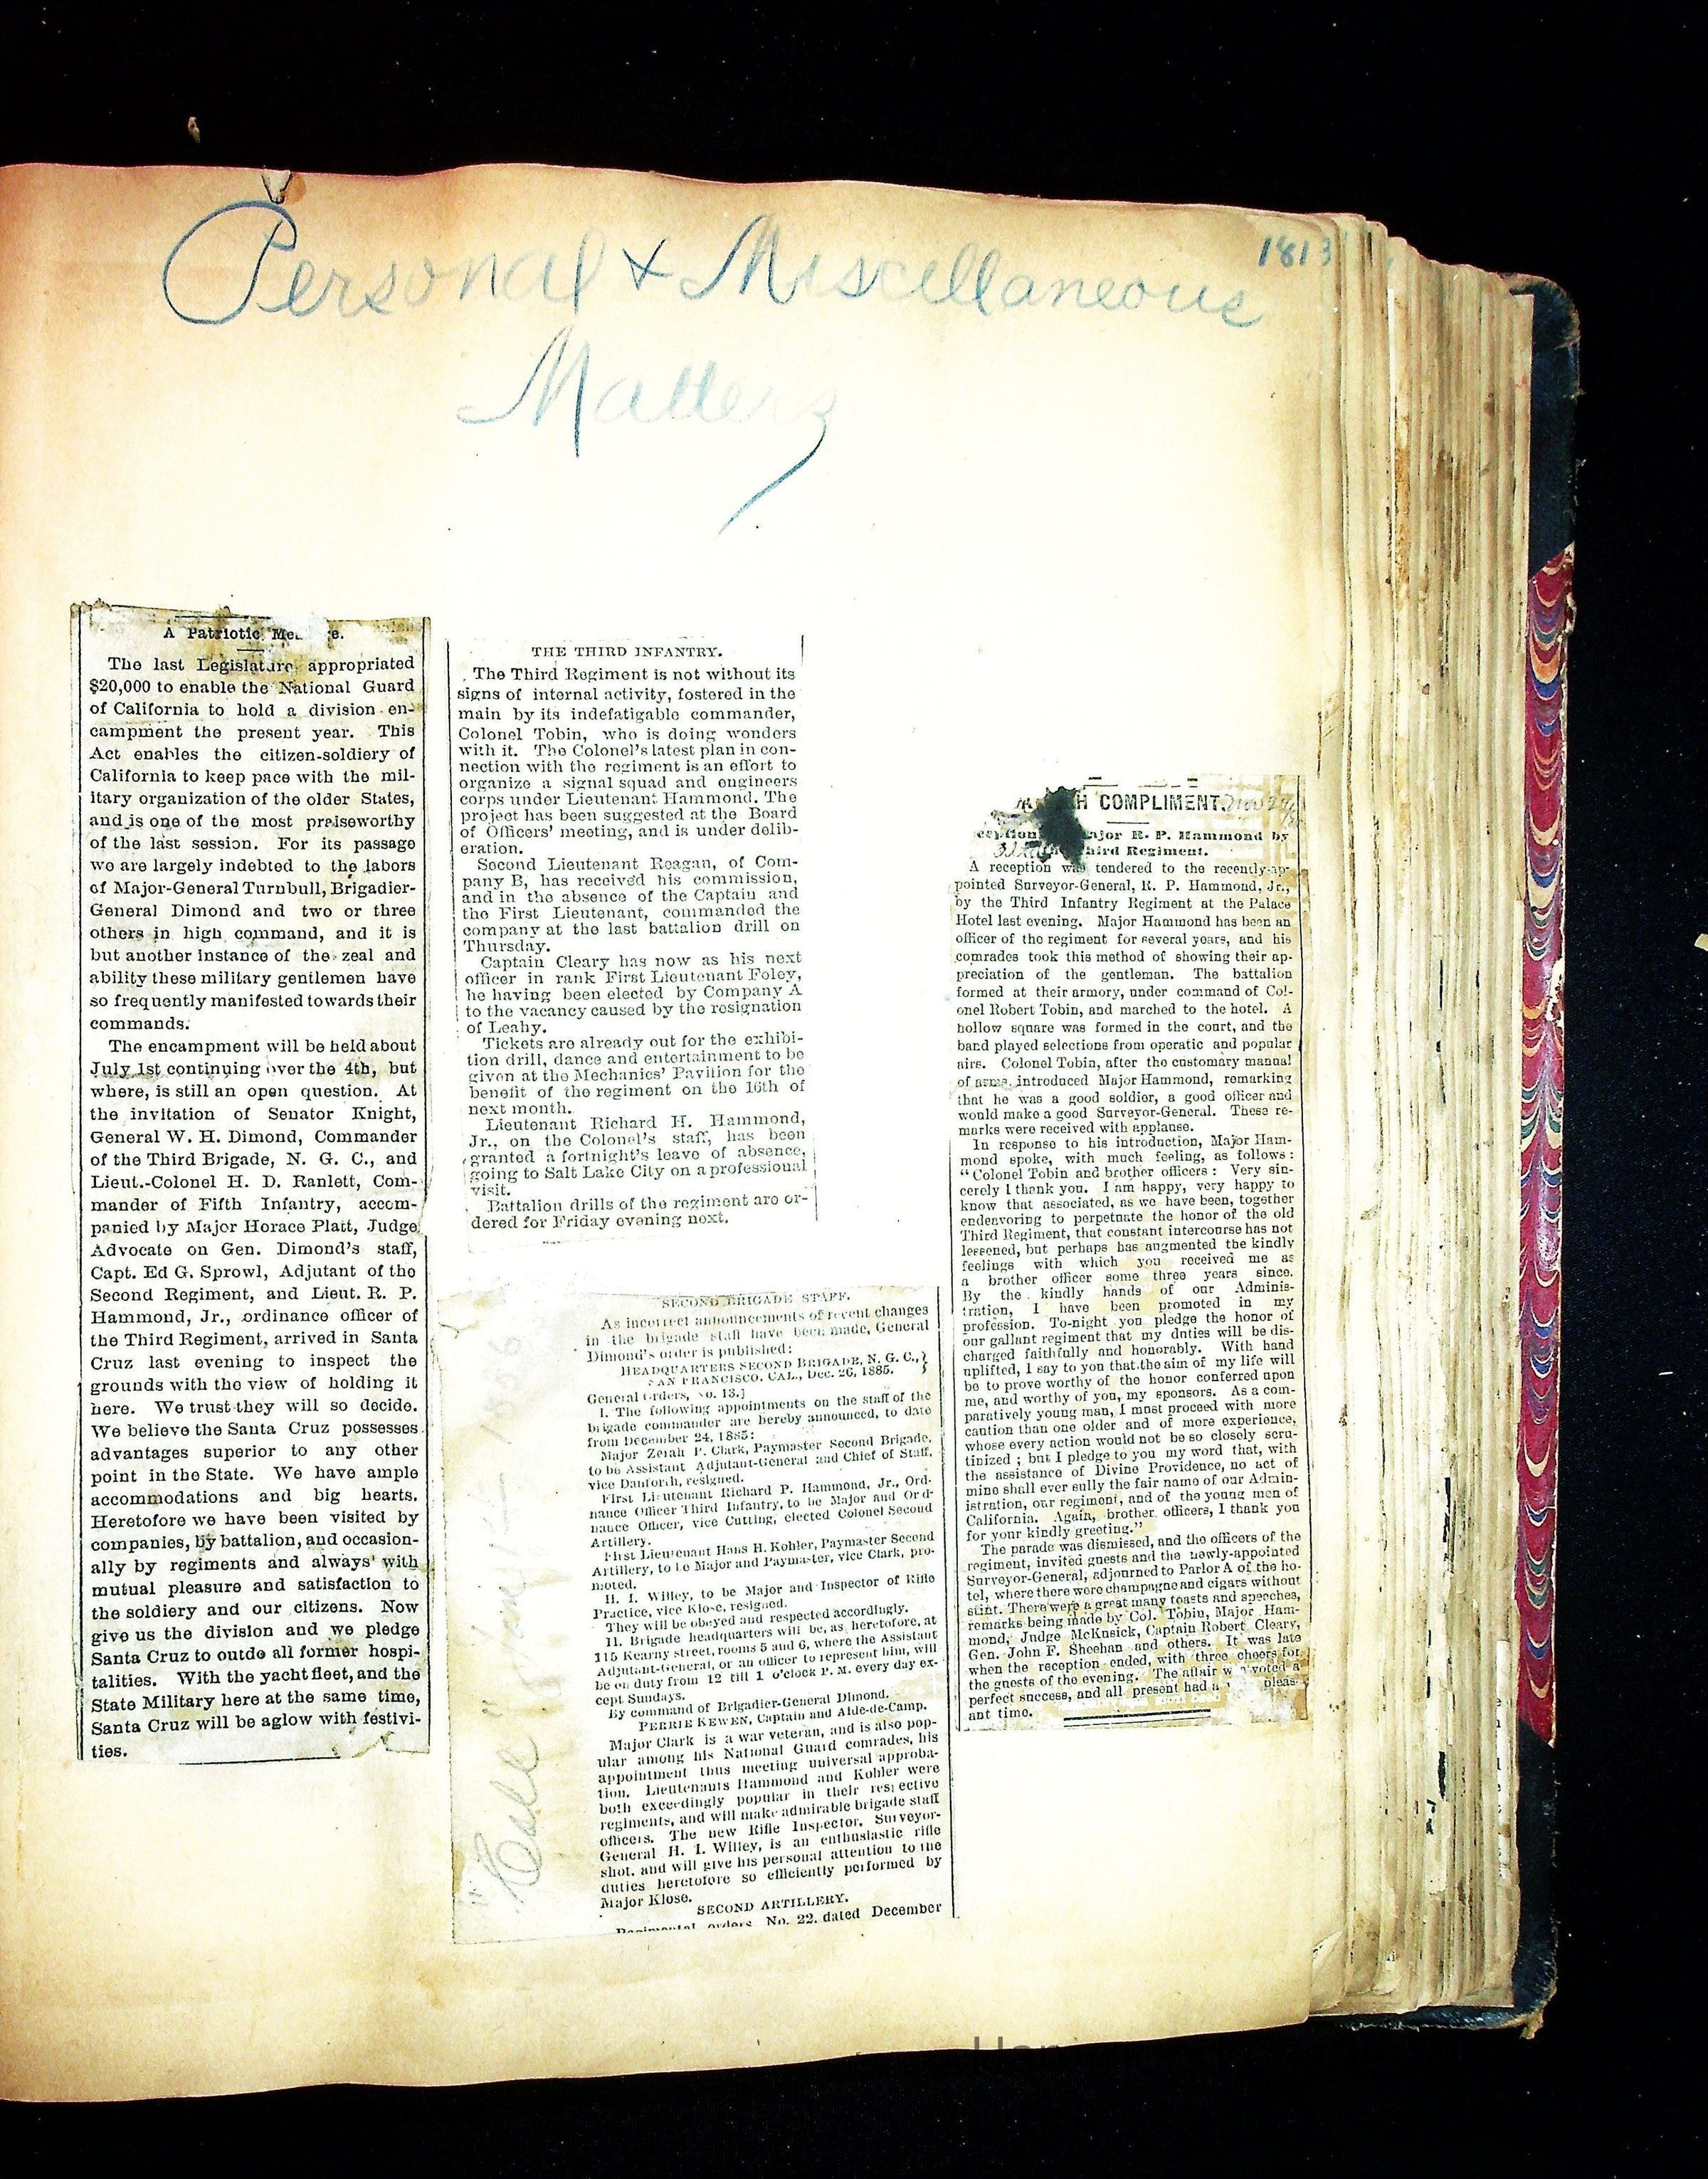 Personal + Miscellaneous
Matters
1813
A Patriotic
The last Legislature appropriated
$20,000 to enable the National Guard
of California to hold a division en-
campment the present year. This
Act enables the citizen-soldiery of
California to keep pace with the mil-
itary organization of the older States,
and is one of the most praiseworthy
of the last session. For its passage
we are largely indebted to the labors
of Major-General Turnbull, Brigadier-
General Dimond and two or three
others in high command, and it is
but another instance of the zeal and
ability these military gentlemen have
so frequently manifested towards their
commands.
The encampment will be held about
July 1st continuing over the 4th, but
where, is still an open question. At
the invitation of Senator Knight,
General W. H. Dimond, Commander
of the Third Brigade, N. G. C., and
Lieut.-Colonel H. D. Ranlett, Com-
mander of Fifth Infantry, accom-
panied by Major Horace Platt, Judge
Advocate on Gen. Dimond's staff,
Capt. Ed G. Sprowl, Adjutant of the
Second Regiment, and Lieut. R. P.
Hammond, Jr., ordinance officer of
the Third Regiment, arrived in Santa
Cruz last evening to inspect the
grounds with the view of holding it
here. We trust they will so decide.
We believe the Santa Cruz possesses
advantages superior to any other
point in the State. We have ample
accommodations and big hearts.
Heretofore we have been visited by
companies, by battalion, and occasion-
ally by regiments and always with
mutual pleasure and satisfaction to
the soldiery and our citizens. Now
give us the division and we pledge
Santa Cruz to outdo all former hospi-
talities. With the yacht fleet, and the
State Military here at the same time,
Santa Cruz will be aglow with festivi-
ties.
THE THIRD INFANTRY.
The Third Regiment is not without its
signs of internal activity, fostered in the
main by its indefatigable commander,
Colonel Tobin, who is doing wonders
with it. The Colonel's latest plan in con-
nection with the regiment is an effort to
organize a signal squad and engineers
corps under Lieutenant Hammond. The
project has been suggested at the Board
of Officers' meeting, and is under delib-
eration.
Second Lieutenant Reagan, of Com-
pany B, has received his commission,
and in the absence of the Captain and
the First Lieutenant, commanded the
company at the last battalion drill on
Thursday.
Captain Cleary has now as his next
officer in rank First Lieutenant Foley,
he having been elected by Company A
to the vacancy caused by the resignation
of Leahy.
Tickets are already out for the exhibi-
tion drill, dance and entertainment to be
given at the Mechanics' Pavilion for the
benefit of the regiment on the 16th of
next month.
Lieutenant Richard H. Hammond,
Jr., on the Colonel's staff, has been
granted a fortnight's leave of absence,
going to Salt Lake City on a professional
visit.
Battalion drills of the regiment are or-
dered for Friday evening next.
"Call"
SECOND BRIGADE STAFF.
As incorrect announcements of recent changes
in the brigade staff have been made, General
Dimond's order is published:
HEADQUARTERS SECOND BRIGADE, N. G. C., }
SAN FRANCISCO, CAL., Dec. 26, 1885. }
General Orders, No. 13.]
I. The following appointments on the staff of the
brigade commander are hereby announced, to date
from December 24, 1885:
Major Zeiah P. Clark, Paymaster Second Brigade,
to be Assistant Adjutant-General and Chief of Staff,
vice Danforth, resigned.
First Lieutenant Richard P. Hammond, Jr., Ord-
nance Officer Third Infantry, to be Major and Ord-
nance Officer, vice Cutting, elected Colonel Second
Artillery.
First Lieutenant Hans H. Kohler, Paymaster Second
Artillery, to be Major and Paymaster, vice Clark, pro-
moted.
H. I. Willey, to be Major and Inspector of Rifle
Practice, vice Klose, resigned.
They will be obeyed and respected accordingly.
II. Brigade headquarters will be, as heretofore, at
115 Kearny street, rooms 5 and 6, where the Assistant
Adjutant-General, or an officer to represent him, will
be on duty from 12 till 1 o'clock P. M. every day ex-
cept Sundays.
By command of Brigadier-General Dimond.
PERRIE KEWEN, Captain and Aide-de-Camp.
Major Clark is a war veteran, and is also pop-
ular among his National Guard comrades, his
appointment thus meeting universal approba-
tion. Lieutenants Hammond and Kohler were
both exceedingly popular in their respective
regiments, and will make admirable brigade staff
officers. The new Rifle Inspector, Surveyor-
General H. I. Willey, is an enthusiastic rifle
shot, and will give his personal attention to the
duties heretofore so efficiently performed by
Major Klose.
SECOND ARTILLERY.
Regimental orders No. 22, dated December
COMPLIMENT.
Major R. P. Hammond by
Third Regiment.
A reception was tendered to the recently-ap-
pointed Surveyor-General, R. P. Hammond, Jr.,
by the Third Infantry Regiment at the Palace
Hotel last evening. Major Hammond has been an
officer of the regiment for several years, and his
comrades took this method of showing their ap-
preciation of the gentleman. The battalion
formed at their armory, under command of Col-
onel Robert Tobin, and marched to the hotel. A
hollow square was formed in the court, and the
band played selections from operatic and popular
airs. Colonel Tobin, after the customary manual
of arms, introduced Major Hammond, remarking
that he was a good soldier, a good officer and
would make a good Surveyor-General. These re-
marks were received with applause.
In response to his introduction, Major Ham-
mond spoke, with much feeling, as follows:
"Colonel Tobin and brother officers: Very sin-
cerely I thank you. I am happy, very happy to
know that associated, as we have been, together
endeavoring to perpetuate the honor of the old
Third Regiment, that constant intercourse has not
lessened, but perhaps has augmented the kindly
feelings with which you received me as
a brother officer some three years since.
By the kindly hands of our Adminis-
tration, I have been promoted in my
profession. To-night you pledge the honor of
our gallant regiment that my duties will be dis-
charged faithfully and honorably. With hand
uplifted, I say to you that the aim of my life will
be to prove worthy of the honor conferred upon
me, and worthy of you, my sponsors. As a com-
paratively young man, I must proceed with more
caution than one older and of more experience,
whose every action would not be so closely scru-
tinized; but I pledge to you my word that, with
the assistance of Divine Providence, no act of
mine shall ever sully the fair name of our Admin-
istration, our regiment, and of the young men of
California. Again, brother officers, I thank you
for your kindly greeting."
The parade was dismissed, and the officers of the
regiment, invited guests and the newly-appointed
Surveyor-General, adjourned to Parlor A of the ho-
tel, where there were champagne and cigars without
stint. There were a great many toasts and speeches,
remarks being made by Col. Tobin, Major Ham-
mond, Judge McKusick, Captain Robert Cleary,
Gen. John F. Sheehan and others. It was late
when the reception ended, with three cheers for
the guests of the evening. The affair voted a
perfect success, and all present had a pleas-
ant time.